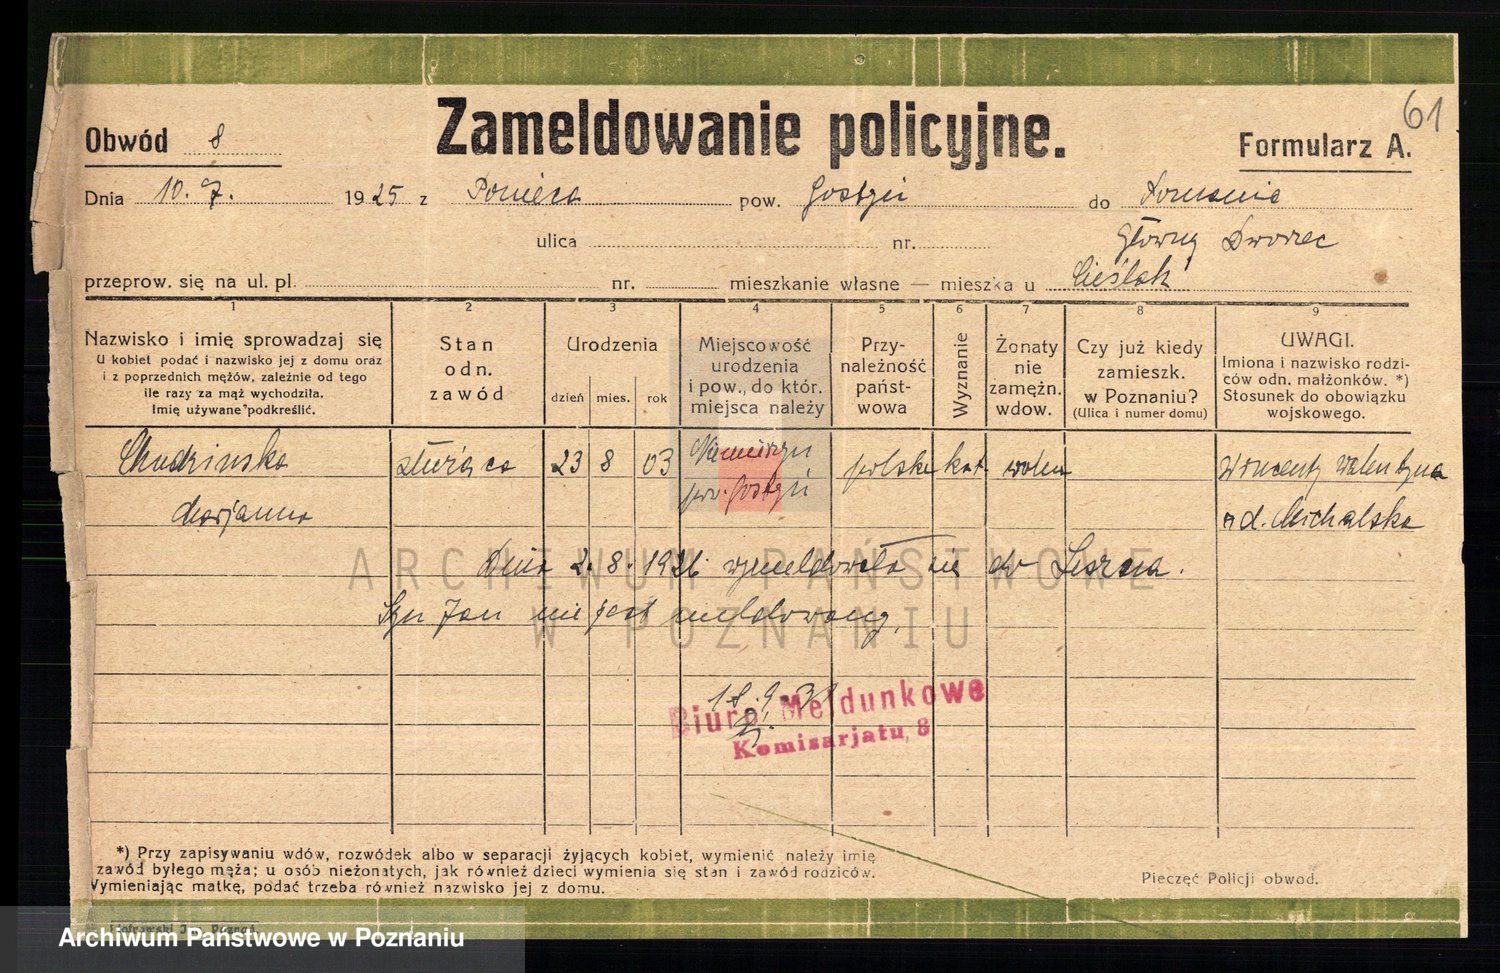 61
Zameldowanie policyjne.
Obwód 8
Formularz A.
Dnia 10. 7. 1925 z Ponieca pow. Gostyń do Poznania
ulica nr. Główny Dworzec
przeprow. się na ul. pl. nr. mieszkanie własne — mieszka u Cieślak
1 2 3 4 5 6 7 8 9
Nazwisko i imię sprowadzaj się
U kobiet podać i nazwisko jej z domu oraz
i z poprzednich mężów, zależnie od tego
ile razy za mąż wychodziła.
Imię używane podkreślić.
Stan
odn.
zawód
Urodzenia
dzień mies. rok
Miejscowość
urodzenia
i pow., do któr.
miejsca należy
Przy-
należność
państ-
wowa
Wyznanie
Żonaty
nie
zamężn.
wdow.
Czy już kiedy
zamieszk.
w Poznaniu?
(Ulica i numer domu)
UWAGI.
Imiona i nazwisko rodzi-
ców odn. małżonków. *)
Stosunek do obowiązku
wojskowego.
Chudzinska służąca 23 8 03 polska kat. wolna Wincenty Walentyna
Marjanna pow. Gostyń d. Michalska
Dnia 2. 8. 1926 wymeldowała się do Leszna.
Syn Jan nie jest meldowany.
ARCHIWUM PAŃSTWOWE
W POZNANIU
Biuro Meldunkowe
Komisarjatu 8
*) Przy zapisywaniu wdów, rozwódek albo w separacji żyjących kobiet, wymienić należy imię
zawód byłego męża; u osób nieżonatych, jak również dzieci wymienia się stan i zawód rodziców.
Wymieniając matkę, podać trzeba również nazwisko jej z domu.
Pieczęć Policji obwod.
Archiwum Państwowe w Poznaniu